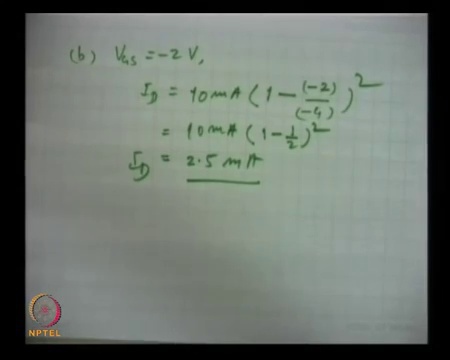 (b) VGS = -2 V,
ID = 10 mA ( 1 - (-2)/(-4) )²
= 10 mA ( 1 - 1/2 )²
ID = 2.5 mA
NPTEL